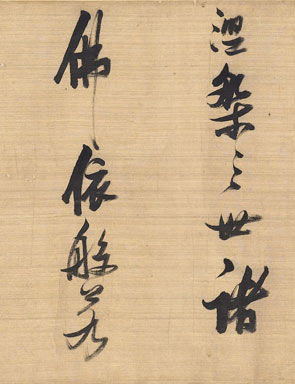 涅槃三世諸
佛依般若